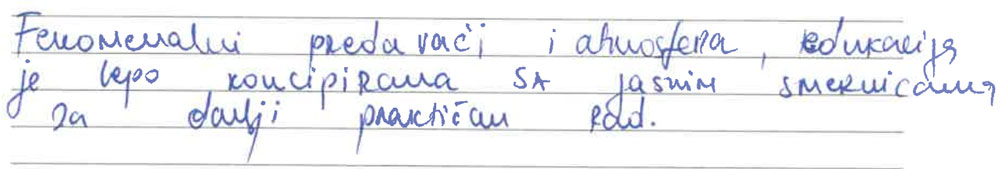 Fenomenalni predavači i atmosfera, edukacija
je lepo koncipirana SA jasnim smernicama
za dalji praktičan rad.